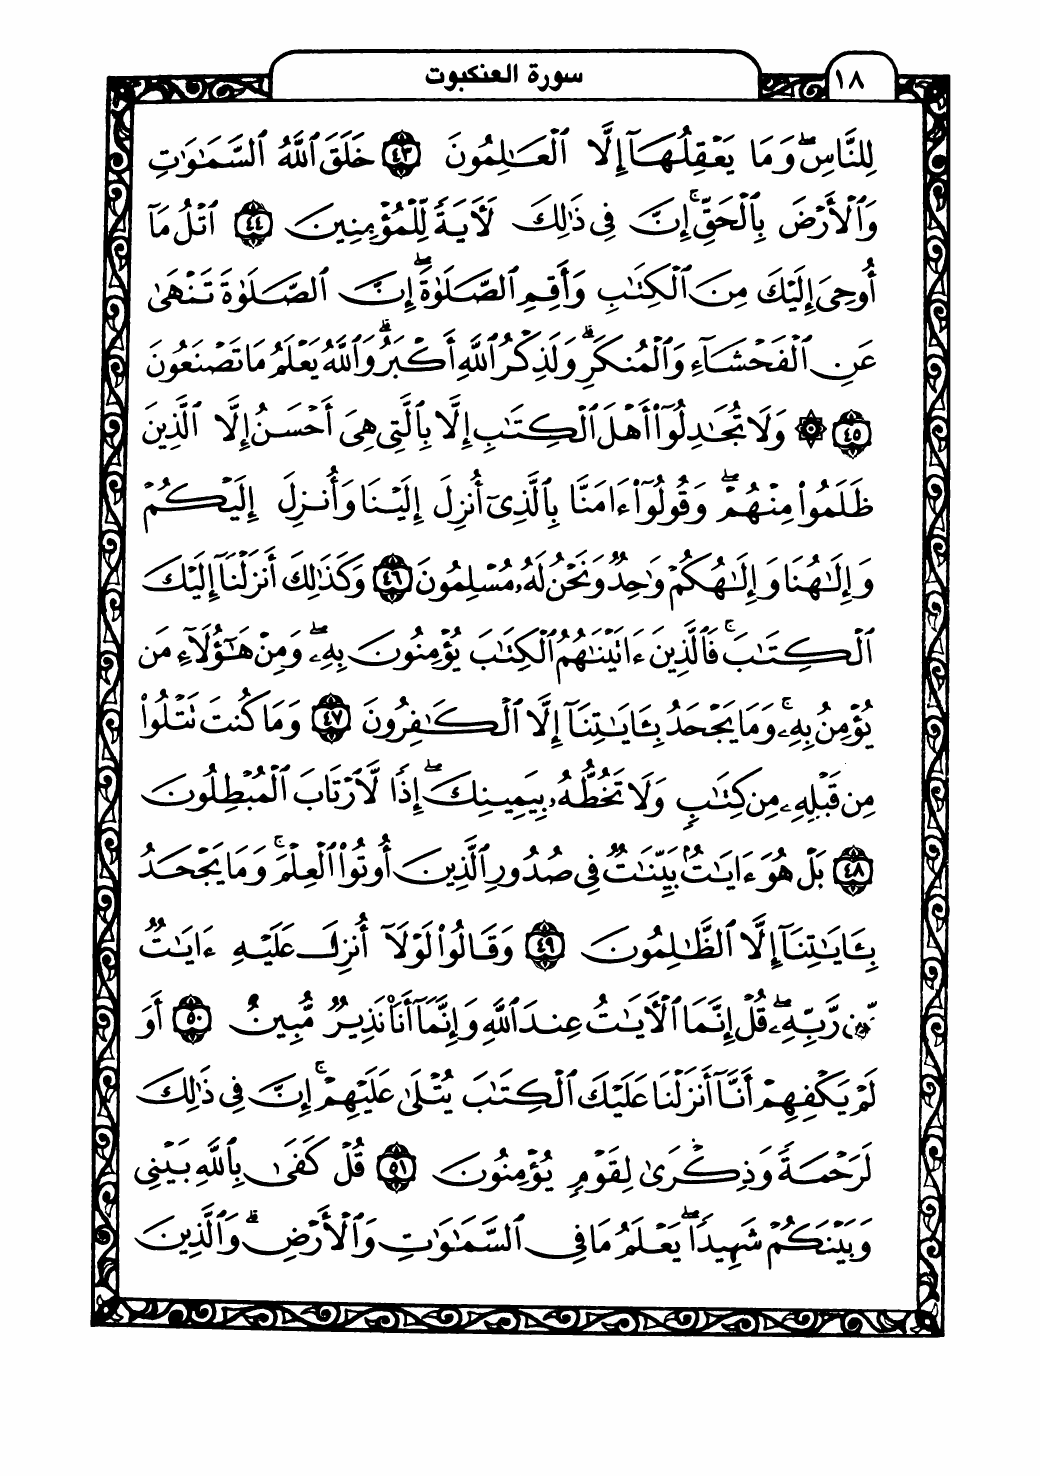 سورة العنكبوت
١٨
لِلنَّاسِ ۖ وَمَا يَعْقِلُهَآ إِلَّا ٱلْعَـٰلِمُونَ ٤٣ خَلَقَ ٱللَّهُ ٱلسَّمَـٰوَٰتِ
وَٱلْأَرْضَ بِٱلْحَقِّ ۚ إِنَّ فِى ذَٰلِكَ لَـَٔايَةً لِّلْمُؤْمِنِينَ ٤٤ ٱتْلُ مَآ
أُوحِىَ إِلَيْكَ مِنَ ٱلْكِتَـٰبِ وَأَقِمِ ٱلصَّلَوٰةَ ۖ إِنَّ ٱلصَّلَوٰةَ تَنْهَىٰ
عَنِ ٱلْفَحْشَآءِ وَٱلْمُنكَرِ ۗ وَلَذِكْرُ ٱللَّهِ أَكْبَرُ ۗ وَٱللَّهُ يَعْلَمُ مَا تَصْنَعُونَ
٤٥ ۞ وَلَا تُجَـٰدِلُوٓا۟ أَهْلَ ٱلْكِتَـٰبِ إِلَّا بِٱلَّتِى هِىَ أَحْسَنُ إِلَّا ٱلَّذِينَ
ظَلَمُوا۟ مِنْهُمْ ۖ وَقُولُوٓا۟ ءَامَنَّا بِٱلَّذِىٓ أُنزِلَ إِلَيْنَا وَأُنزِلَ إِلَيْكُمْ
وَإِلَـٰهُنَا وَإِلَـٰهُكُمْ وَٰحِدٌ وَنَحْنُ لَهُۥ مُسْلِمُونَ ٤٦ وَكَذَٰلِكَ أَنزَلْنَآ إِلَيْكَ
ٱلْكِتَـٰبَ ۚ فَٱلَّذِينَ ءَاتَيْنَـٰهُمُ ٱلْكِتَـٰبَ يُؤْمِنُونَ بِهِۦ ۖ وَمِنْ هَـٰٓؤُلَآءِ مَن
يُؤْمِنُ بِهِۦ ۚ وَمَا يَجْحَدُ بِـَٔايَـٰتِنَآ إِلَّا ٱلْكَـٰفِرُونَ ٤٧ وَمَا كُنتَ تَتْلُوا۟
مِن قَبْلِهِۦ مِن كِتَـٰبٍ وَلَا تَخُطُّهُۥ بِيَمِينِكَ ۖ إِذًا لَّٱرْتَابَ ٱلْمُبْطِلُونَ
٤٨ بَلْ هُوَ ءَايَـٰتٌۢ بَيِّنَـٰتٌ فِى صُدُورِ ٱلَّذِينَ أُوتُوا۟ ٱلْعِلْمَ ۚ وَمَا يَجْحَدُ
بِـَٔايَـٰتِنَآ إِلَّا ٱلظَّـٰلِمُونَ ٤٩ وَقَالُوا۟ لَوْلَآ أُنزِلَ عَلَيْهِ ءَايَـٰتٌ
مِّن رَّبِّهِۦ ۖ قُلْ إِنَّمَا ٱلْـَٔايَـٰتُ عِندَ ٱللَّهِ وَإِنَّمَآ أَنَا۠ نَذِيرٌ مُّبِينٌ ٥٠ أَوَ
لَمْ يَكْفِهِمْ أَنَّآ أَنزَلْنَا عَلَيْكَ ٱلْكِتَـٰبَ يُتْلَىٰ عَلَيْهِمْ ۚ إِنَّ فِى ذَٰلِكَ
لَرَحْمَةً وَذِكْرَىٰ لِقَوْمٍ يُؤْمِنُونَ ٥١ قُلْ كَفَىٰ بِٱللَّهِ بَيْنِى
وَبَيْنَكُمْ شَهِيدًا ۖ يَعْلَمُ مَا فِى ٱلسَّمَـٰوَٰتِ وَٱلْأَرْضِ ۗ وَٱلَّذِينَ